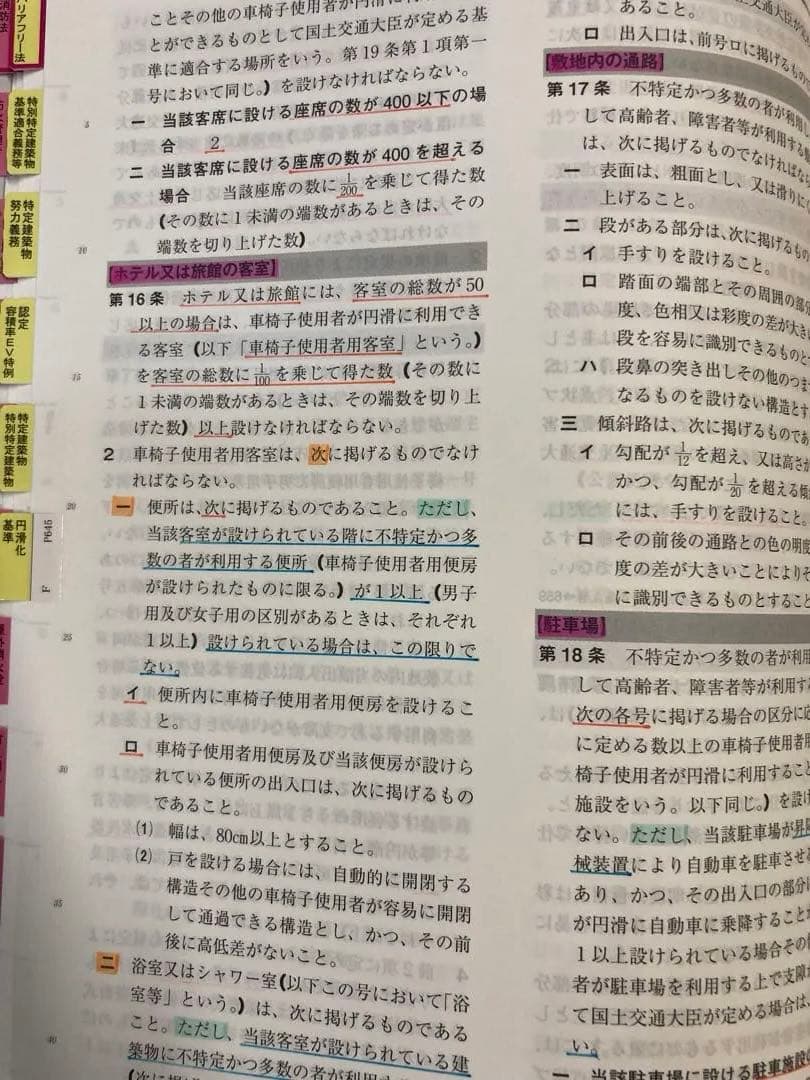 消防法
バリアフリー法
特別特定建築物
基準適合義務等
特定建築物
努力義務
認定
容積率EV特例
特定建築物
特別特定建築物
円滑化
基準
P645
F
とができるものとして国土交通大臣が定める基
準に適合する場所をいう。第19条第1項第一
号において同じ。)を設けなければならない。
5
一 当該客席に設ける座席の数が400以下の場
合 2
二 当該客席に設ける座席の数が400を超える
場合 当該座席の数に1/200を乗じて得た数
(その数に1未満の端数があるときは、その
10
端数を切り上げた数)
【ホテル又は旅館の客室】
第16条 ホテル又は旅館には、客室の総数が50
以上の場合は、車椅子使用者が円滑に利用でき
る客室(以下「車椅子使用者用客室」という。)
15
を客室の総数に1/100を乗じて得た数(その数に
1未満の端数があるときは、その端数を切り上
げた数)以上設けなければならない。
2 車椅子使用者用客室は、次に掲げるものでなけ
ればならない。
20
一 便所は、次に掲げるものであること。ただし、
当該客室が設けられている階に不特定かつ多
数の者が利用する便所(車椅子使用者用便房
が設けられたものに限る。)が1以上(男子
用及び女子用の区別があるときは、それぞれ
25
1以上)設けられている場合は、この限りで
ない。
イ 便所内に車椅子使用者用便房を設けるこ
と。
ロ 車椅子使用者用便房及び当該便房が設けら
30
れている便所の出入口は、次に掲げるもの
であること。
(1) 幅は、80cm以上とすること。
(2) 戸を設ける場合には、自動的に開閉する
構造その他の車椅子使用者が容易に開閉
35
して通過できる構造とし、かつ、その前
後に高低差がないこと。
二 浴室又はシャワー室(以下この号において「浴
室等」という。)は、次に掲げるものである
こと。ただし、当該客室が設けられている建
40
築物に不特定かつ多数の者が利用する
あること。
ロ 出入口は、前号ロに掲げるもの
【敷地内の通路】
第17条 不特定かつ多数の者が利用
して高齢者、障害者等が利用する
は、次に掲げるものでなければなら
一 表面は、粗面とし、又は滑りに
上げること。
二 段がある部分は、次に掲げるもの
イ 手すりを設けること。
ロ 踏面の端部とその周囲の部分
度、色相又は彩度の差が大き
段を容易に識別できるものと
ハ 段鼻の突き出しその他のつま
なるものを設けない構造とす
三 傾斜路は、次に掲げるものであ
イ 勾配が1/12を超え、又は高さが
かつ、勾配が1/20を超える傾
には、手すりを設けること。
ロ その前後の通路との色の明度
度の差が大きいことによりそ
に識別できるものとすること
【駐車場】
第18条 不特定かつ多数の者が利用
して高齢者、障害者等が利用する
次の各号に掲げる場合の区分に応
に定める数以上の車椅子使用者
椅子使用者が円滑に利用すること
施設をいう。以下同じ。)を設け
ない。ただし、当該駐車場が昇
械装置により自動車を駐車させ
あり、かつ、その出入口の部分に
が円滑に自動車に乗降すること
1以上設けられている場合その他
者が駐車場を利用する上で支障
て国土交通大臣が定める場合は、
い。
一 当該駐車場に設ける駐車施設の